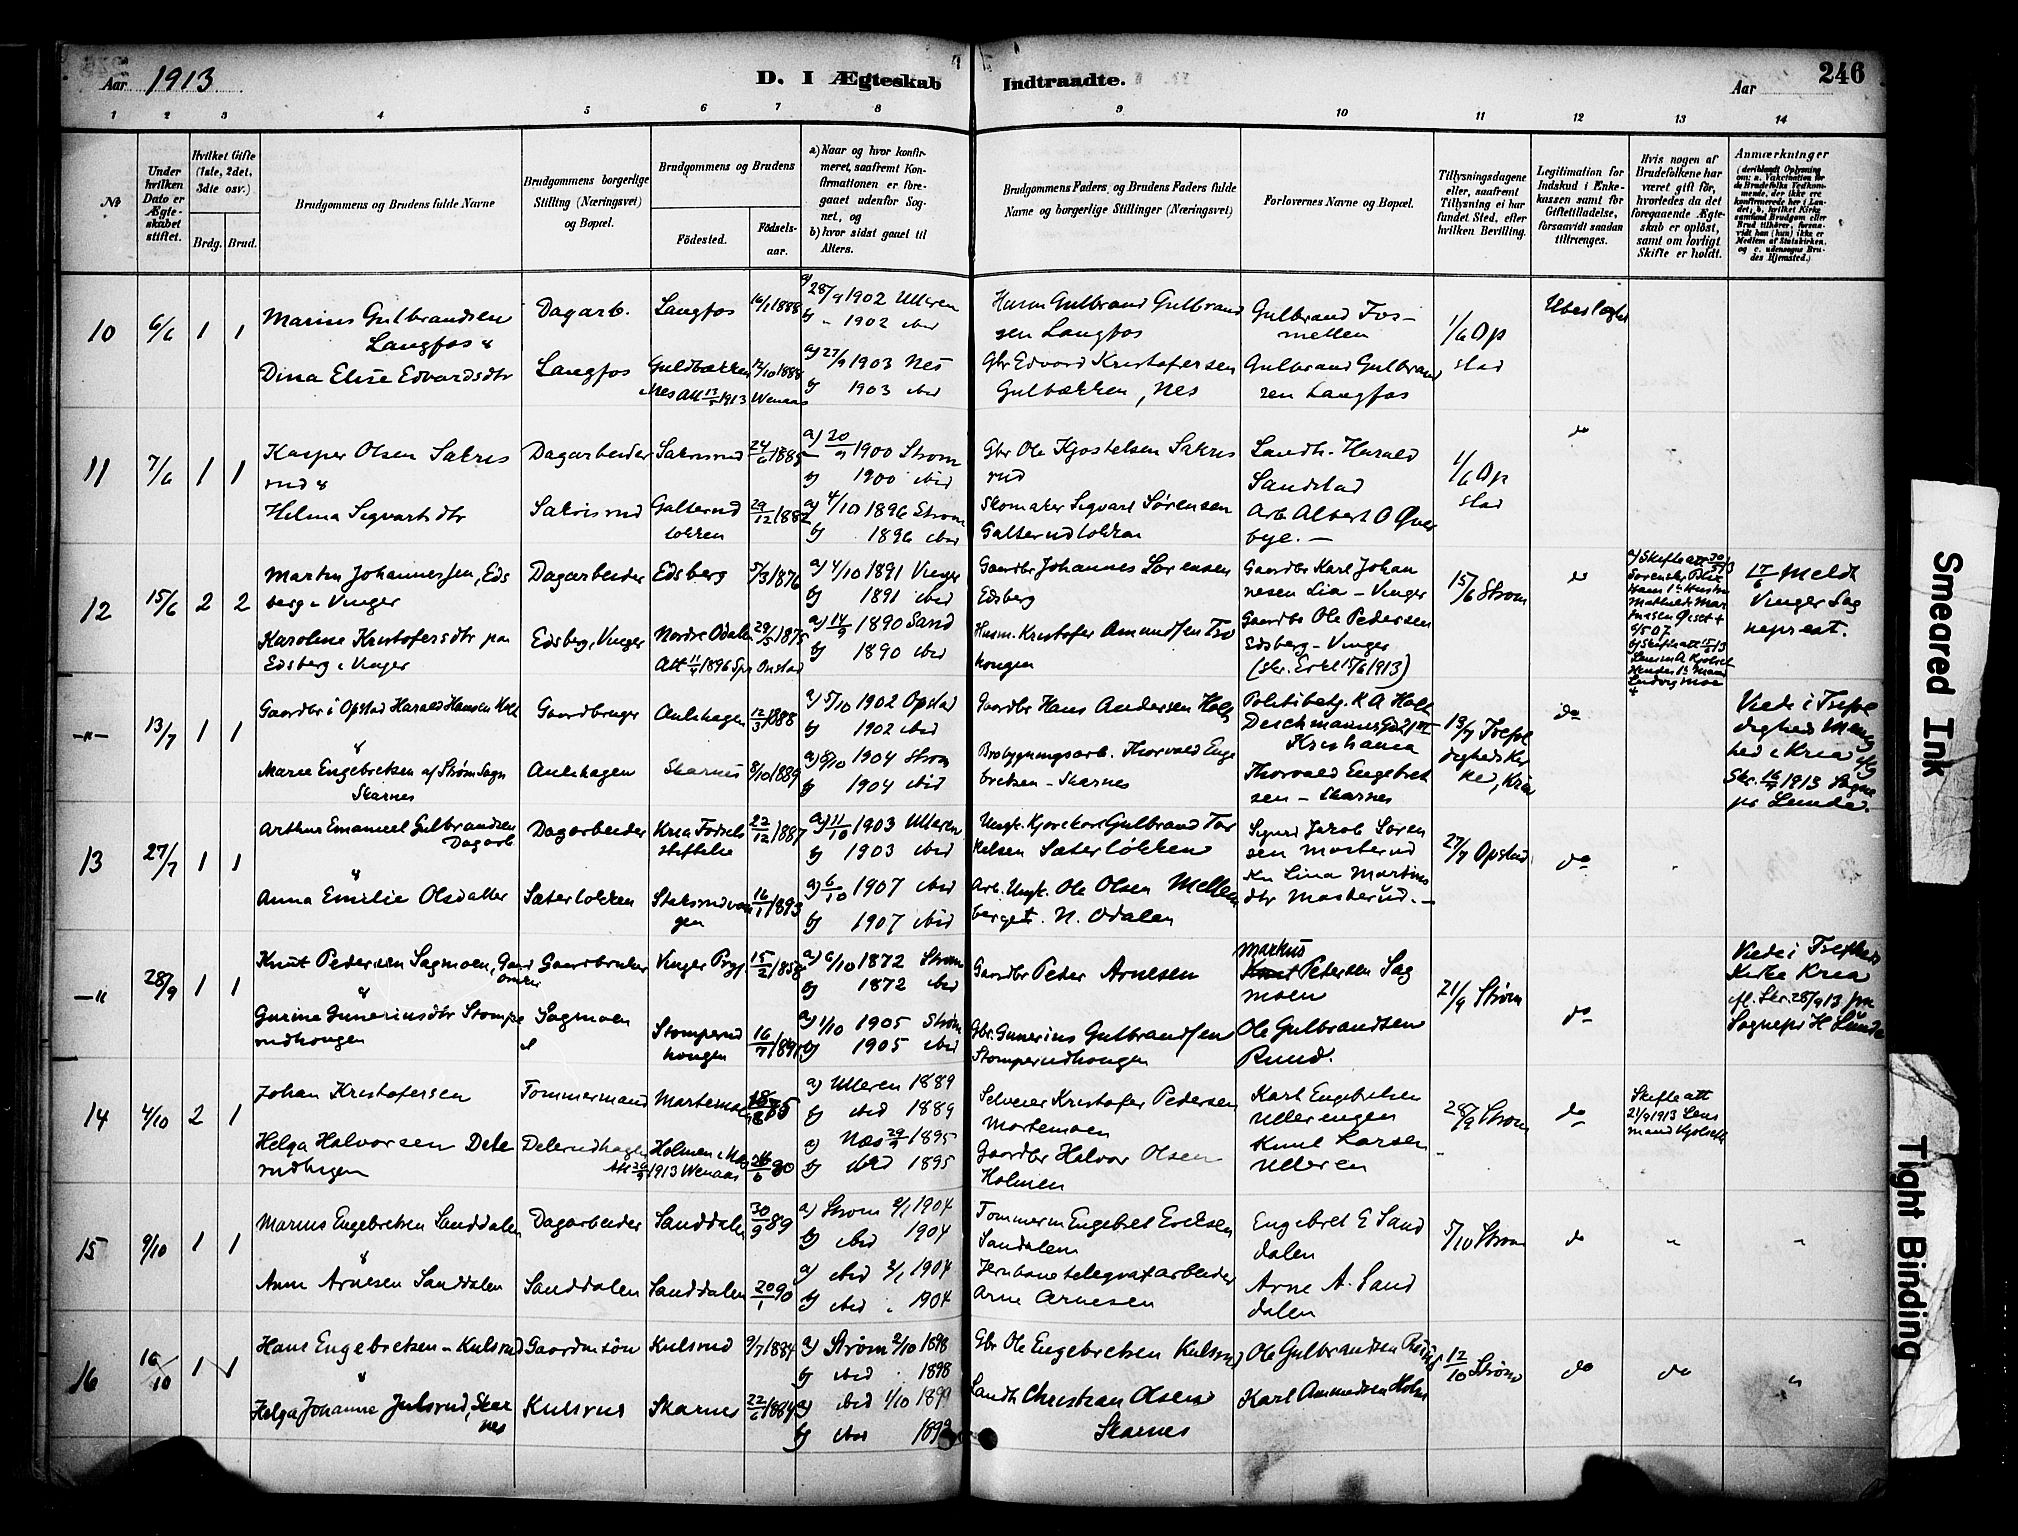 Aar 1913
D. I Ægteskab Indtraadte.
Aar
246
1 2 3 4 5 6 7 8 9 10 11 12 13 14
№
Under hvilken Dato er Ægteskabet stiftet.
Hvilket Gifte (1ste, 2det, 3die osv.)
Brdg. Brud.
Brudgommens og Brudens fulde Navne
Brudgommens borgerlige Stilling (Næringsvei) og Bopæl.
Brudgommens og Brudens
Fødested.
Fødsels-aar.
a) Naar og hvor konfirmeret, saafremt Konfirmationen er foregaaet udenfor Sognet, og
b) hvor sidst gaaet til Alters.
Brudgommens Faders og Brudens Faders fulde Navne og borgerlige Stillinger (Næringsvei)
Forlovernes Navne og Bopæl.
Tillysningsdagene eller, saafremt Tillysning ei har fundet Sted, efter hvilken Bevilling.
Legitimation for Indskud i Enkekassen samt for Giftetilladelse, forsaavidt saadan tiltrænges.
Hvis nogen af Brudefolkene har været gift før, hvorledes da det foregaaende Ægteskab er opløst, samt om lovligt Skifte er holdt.
Anmærkninger
10 6/6 1 1
Marius Gulbrandsen
Langfos &
Dina Elise Edvardsdtr
Dagarb.
Langfos
Langfos 16/1 1888
Guldbækken 14/10 1888
Nes Att 17/5 1913 Wenaas
a) 28/9 1902 Ulleren
b) " 1902 ibid
a) 27/9 1903 Nes
b) 1903 ibid
Husm Gulbrand Gulbrand
sen Langfos
Gbr Edvard Kristofersen
Gulbækken, Nes
Gulbrand Fos-
mellem
Gulbrand Gulbrand
sen Langfos
1/6 Op
stad
11 7/6 1 1
Kasper Olsen Sakris
rud &
Helma Sigvartsdtr
Dagarbeider
Sakrisrud
Sakrisrud 24/6 1885
Galterud
løkken 29/12 1882
a) 20/9 1900 Strøm
b) 1900 ibid
a) 4/10 1896 Strøm
b) 1896 ibid
Gbr Ole Kjostelsen Sakris
rud
Skomaker Sigvart Sørensen
Galterudløkken
Landh. Harald
Sandstad
Arb Albert O Øver
bye. —
1/6 Op
stad
do
12 15/6 2 2
Martin Johannessen, Eds
berg i Vinger
Karoline Kristofersdtr paa
Edsberg i Vinger
Dagarbeider
Edsberg, Vinger
Edsberg 5/3 1876
Nordre Odalen 29/5 1875
Att 11/4 1896 Spr Onstad
a) 4/10 1891 Vinger
b) 1891 ibid
a) 14/9 1890 Sand
b) 1890 ibid
Gaardbr Johannes Sørensen
Edsberg
Husm. Kristofer Amundsen Tro
hongen
Gaardbr Karl Johan
nesen Lia - Vinger
Gaardbr Ole Pedersen
Edsberg - Vinger
(skr. Erkl 15/6 1913)
15/6 Strøm
do
17/6 Meldt
Vinger Sog
nepræst.
—"— 13/7 1 1
Gaardbr i Opstad Harald Hansen Holt
&
Marie Engebretsen af Strøm Sogn
Skarnes
Gaardbruger
Aulihagen
Aulihagen 12/3 1888
Skarnes 8/10 1889
a) 5/10 1902 Opstad
b) 1902 ibid
a) 8/10 1904 Strøm
b) 1904 ibid
Gaardbr Hans Andersen Holt
Brobygningsarb. Thorvald Enge
bretsen - Skarnes
Politibetj. K A Holt
Kristiania
Thorvald Engebret
sen - Skarnes
13/7 Trefol
digheds Kir
ke, Kria
do
Viede i Trefol
dighed Menig
hed i Kria
Skr. 16/7 1913 Sogne
pr Lunde.
13 27/7 1 1
Arthur Emanuel Gulbrandsen
Dagarb
&
Anna Emilie Olsdatter
Dagarbeider
Sæterløkken
Kria Fødsels
stiftelse 22/12 1887
Staksrudvan
gen 16/1 1893
a) 11/10 1903 Ulleren
b) 1903 ibid
a) 6/10 1907 ibid
b) 1907 ibid
Ungk. Kjørekarl Gulbrand Tor
kelsen Sæterløkken
Arb. Ungk. Ole Olsen Mellem
berget. N. Odalen
Sigurd Jacob Søren
sen Mosterud
Lina Martins
dtr Mosterud. —
27/7 Opstad
do
—" 28/9 1 1
Knut Pedersen Sagmoen, Gaard
bruker
&
Gurine Guneriusdtr Stompe
rudhongen
Gaardbruker
Sagmoen
Vinger Pgj 15/2 1858
Stomperud
hongen 16/7 1891
a) 6/10 1872 Strøm
b) 1872 ibid
a) 1/10 1905 Strøm
b) 1905 ibid
Gaardbr Peder Arnesen
Gbr. Gunerius Gulbrandsen
Stomperudhongen
Markus
Knut Petersen Sag
moen
Ole Gulbrandsen
Ruud.
21/9 Strøm
do
Viede i Trefold
Kirke Kria
ifl. Skr. 28/9 13 fra
Sognepr H Lunde
14 4/10 2 1
Johan Kristofersen
Helga Halvorsen Dele
rudhagen
Tømmermand
Delerudhagen
Att 26/9 1913 Wenaas
Martemoen 75
Holmen i Nes 80
a) Ulleren 1889
b) ibid 1889
a) Næs 29/9 1895
b) ibid 1895
Selveier Kristofer Pedersen
Mortemoen
Gaardbr Halvor Olsen
Holmen
Karl Engebretsen
Ullerengen
Knut Larsen
Ulleren
28/9 Strøm
do
Skifteatt
21/9 1913 Lens
mand Kjølseth
15 9/10 1 1
Marius Engebretsen Sanddalen
&
Anne Arnesen Sanddalen
Dagarbeider
Sanddalen
Sanddalen 30/9 89
Sanddalen 20/1 90
a) Strøm 2/1 1904
b) ibid 1904
a) ibid 2/1 1904
b) ibid 1904
Tømmerm Engebret Eriksen
Sandalen
Jernbanetelegrafarbeider
Arne Arnesen
Engebret E Sand
dalen
Arne A. Sand
dalen
5/10 Strøm
do " "
16 16/10 1 1
Hans Engebretsen - Kulsrud
&
Helga Johanne Julsrud, Skar
nes
Gaardmsøn
Kulsrud
Kulsrud 9/7 1884
Skarnes 22/6 1884
a) Strøm 2/10 1898
b) ibid 1898
a) ibid 1/10 1899
b) ibid 1899
Gbr Ole Engebretsen Kulsrud
Landh Christian Olsen
Skarnes
Ole Gulbrandsen
Karl Amundsen Holm
12/10 Strøm
do do "
Smeared Ink
Tight Binding